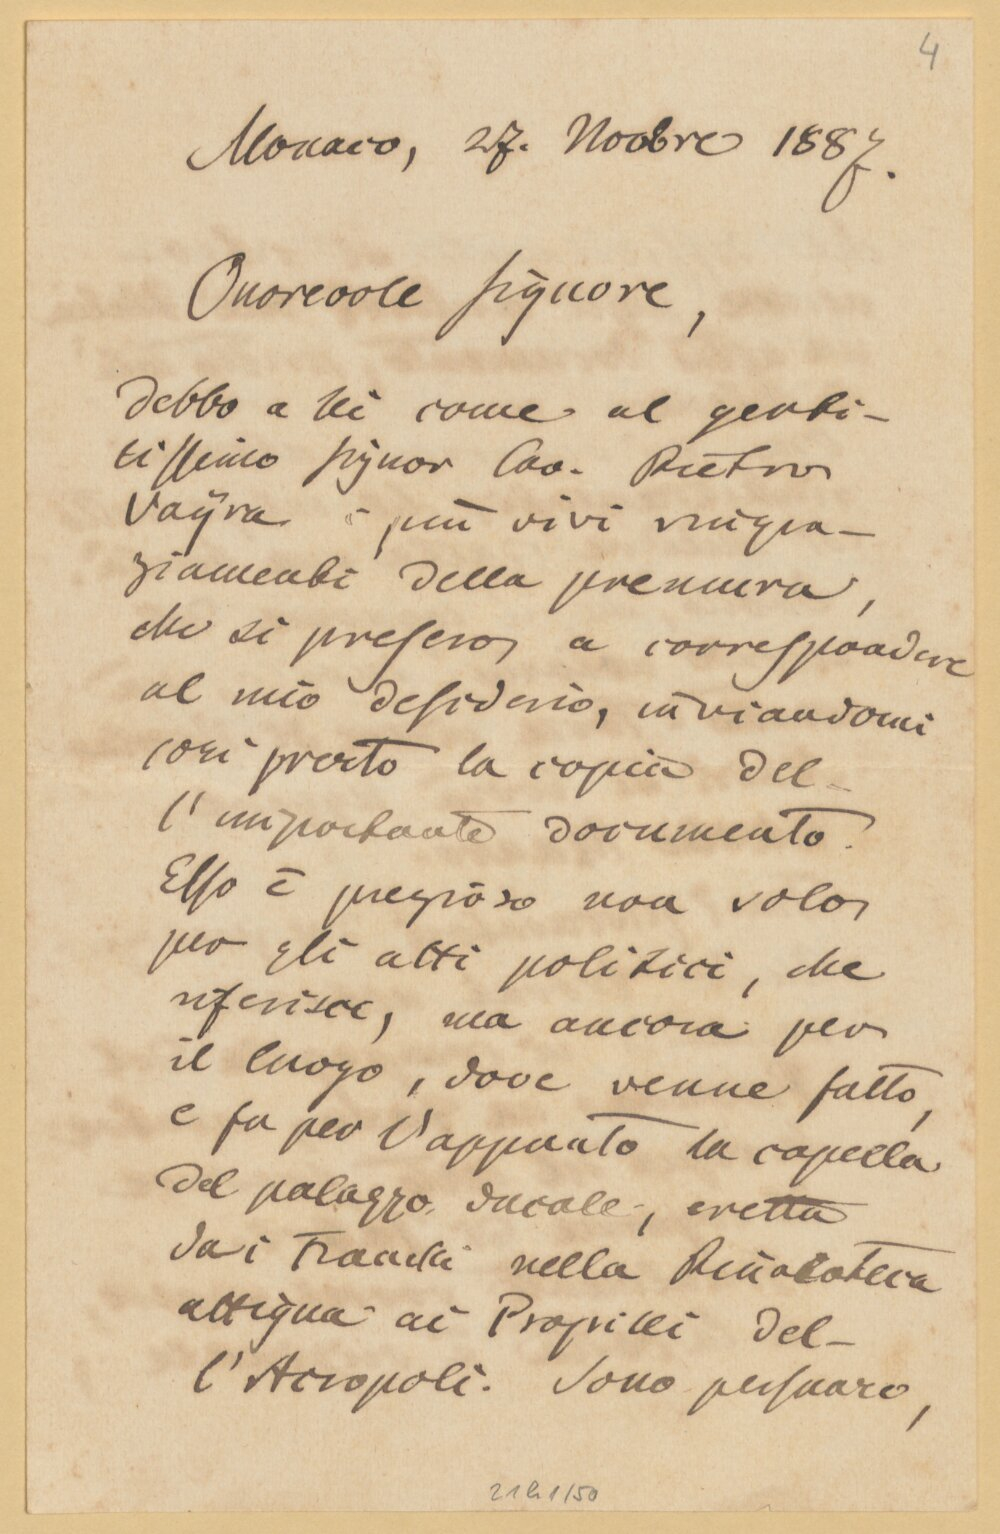 4
Monaco, 27. Novbre 1887.
Onorevole Signore,
Debbo a Lei come al genti-
lissimo Signor Cav. Pietro
Vaÿra i più vivi ringra-
ziamenti della premura,
che si presero a correspondere
al mio desiderio, inviandomi
così presto la copia del-
l'importante documento.
Esso è prezioso non solo
per gli atti politici, che
riferisce, ma ancora per
il luogo, dove venne fatto,
e fu per l'appunto la capella
del palazzo ducale, eretta
dai Franchi nella Pinacoteca
attigua ai Propilei del-
l'Acropoli. Sono persuaso,
21h1/50